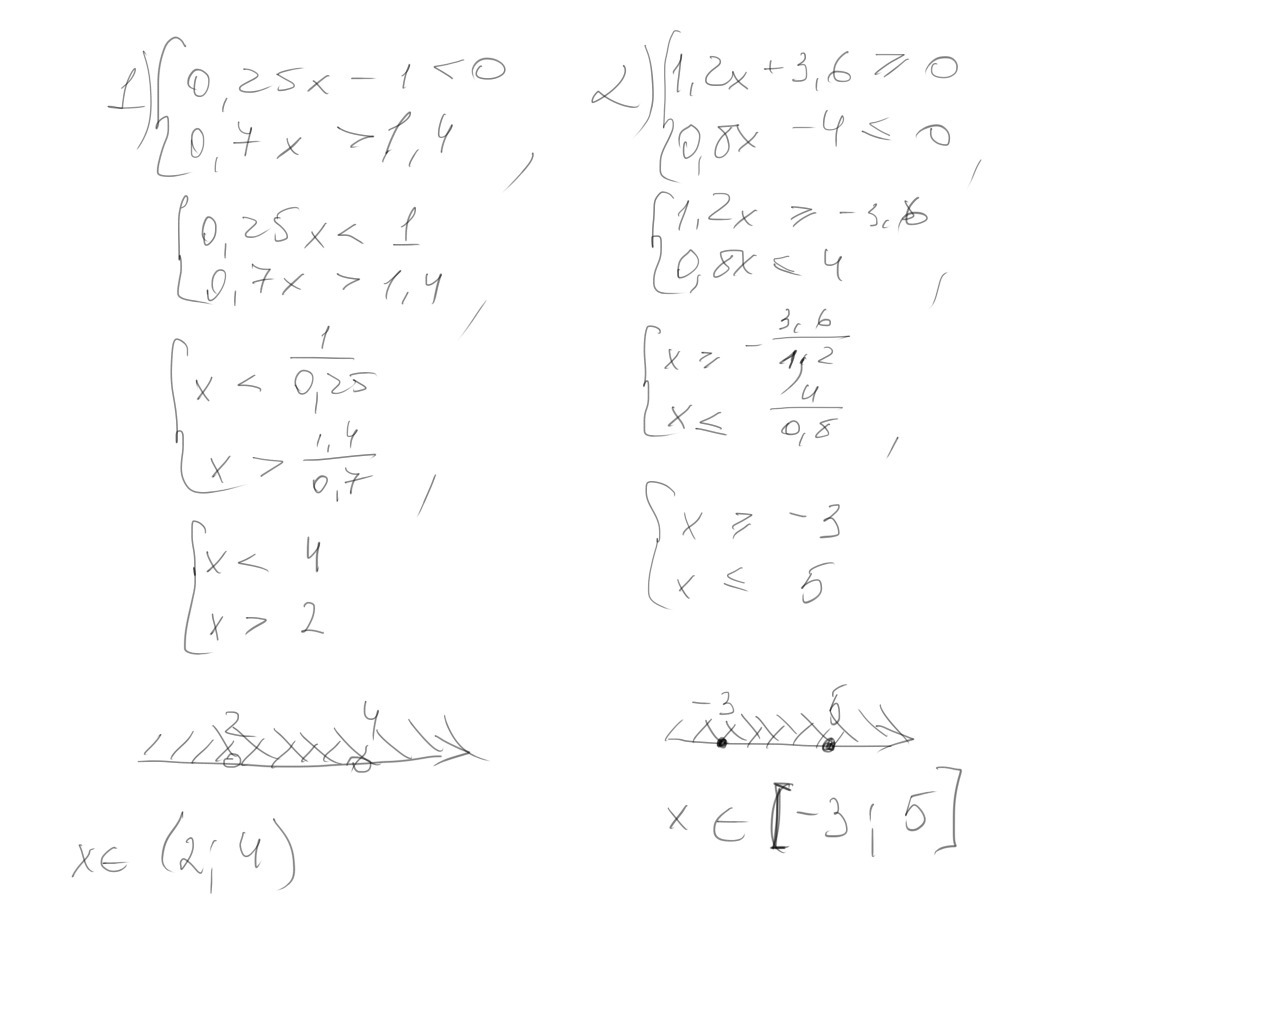 1) { 0,25x - 1 < 0
0,7x > 1,4 ,
{ 0,25x < 1
0,7x > 1,4 ,
{ x < 1/0,25
x > 1,4/0,7 ,
{ x < 4
x > 2
2 4
x ∈ (2; 4)
2) { 1,2x + 3,6 ⩾ 0
0,8x - 4 ≤ 0 ,
{ 1,2x ⩾ -3,6
0,8x ≤ 4 ,
{ x ⩾ - 3,6/1,2
x ≤ 4/0,8 ,
{ x ⩾ -3
x ≤ 5
-3 5
x ∈ [-3; 5]